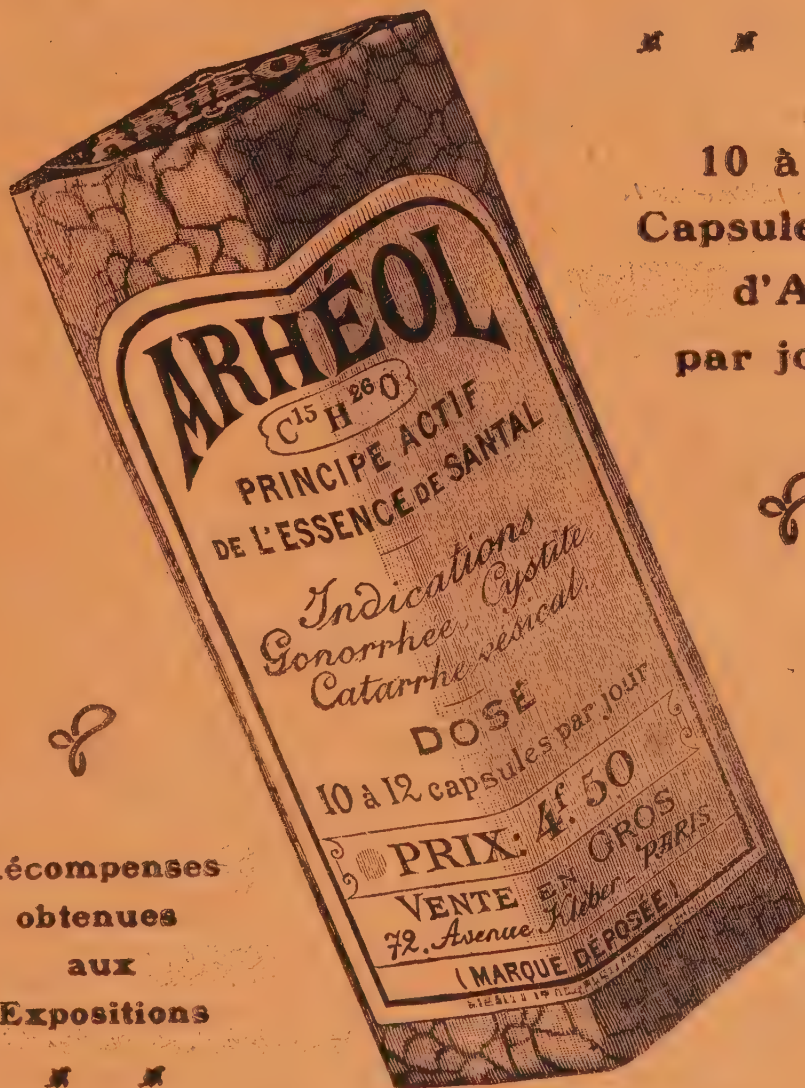 ARHEOL
10 à
Capsule
d'A
par jo
ARHÉOL
C15 H26 O
PRINCIPE ACTIF
DE L'ESSENCE DE SANTAL
Indications
Gonorrhee Cystite
Catarrhe vésical.
DOSE
10 à 12 capsules par jour
PRIX: 4f. 50
VENTE EN GROS
72, Avenue Kléber _ PARIS
(MARQUE DÉPOSÉE)
écompenses
obtenues
aux
Expositions